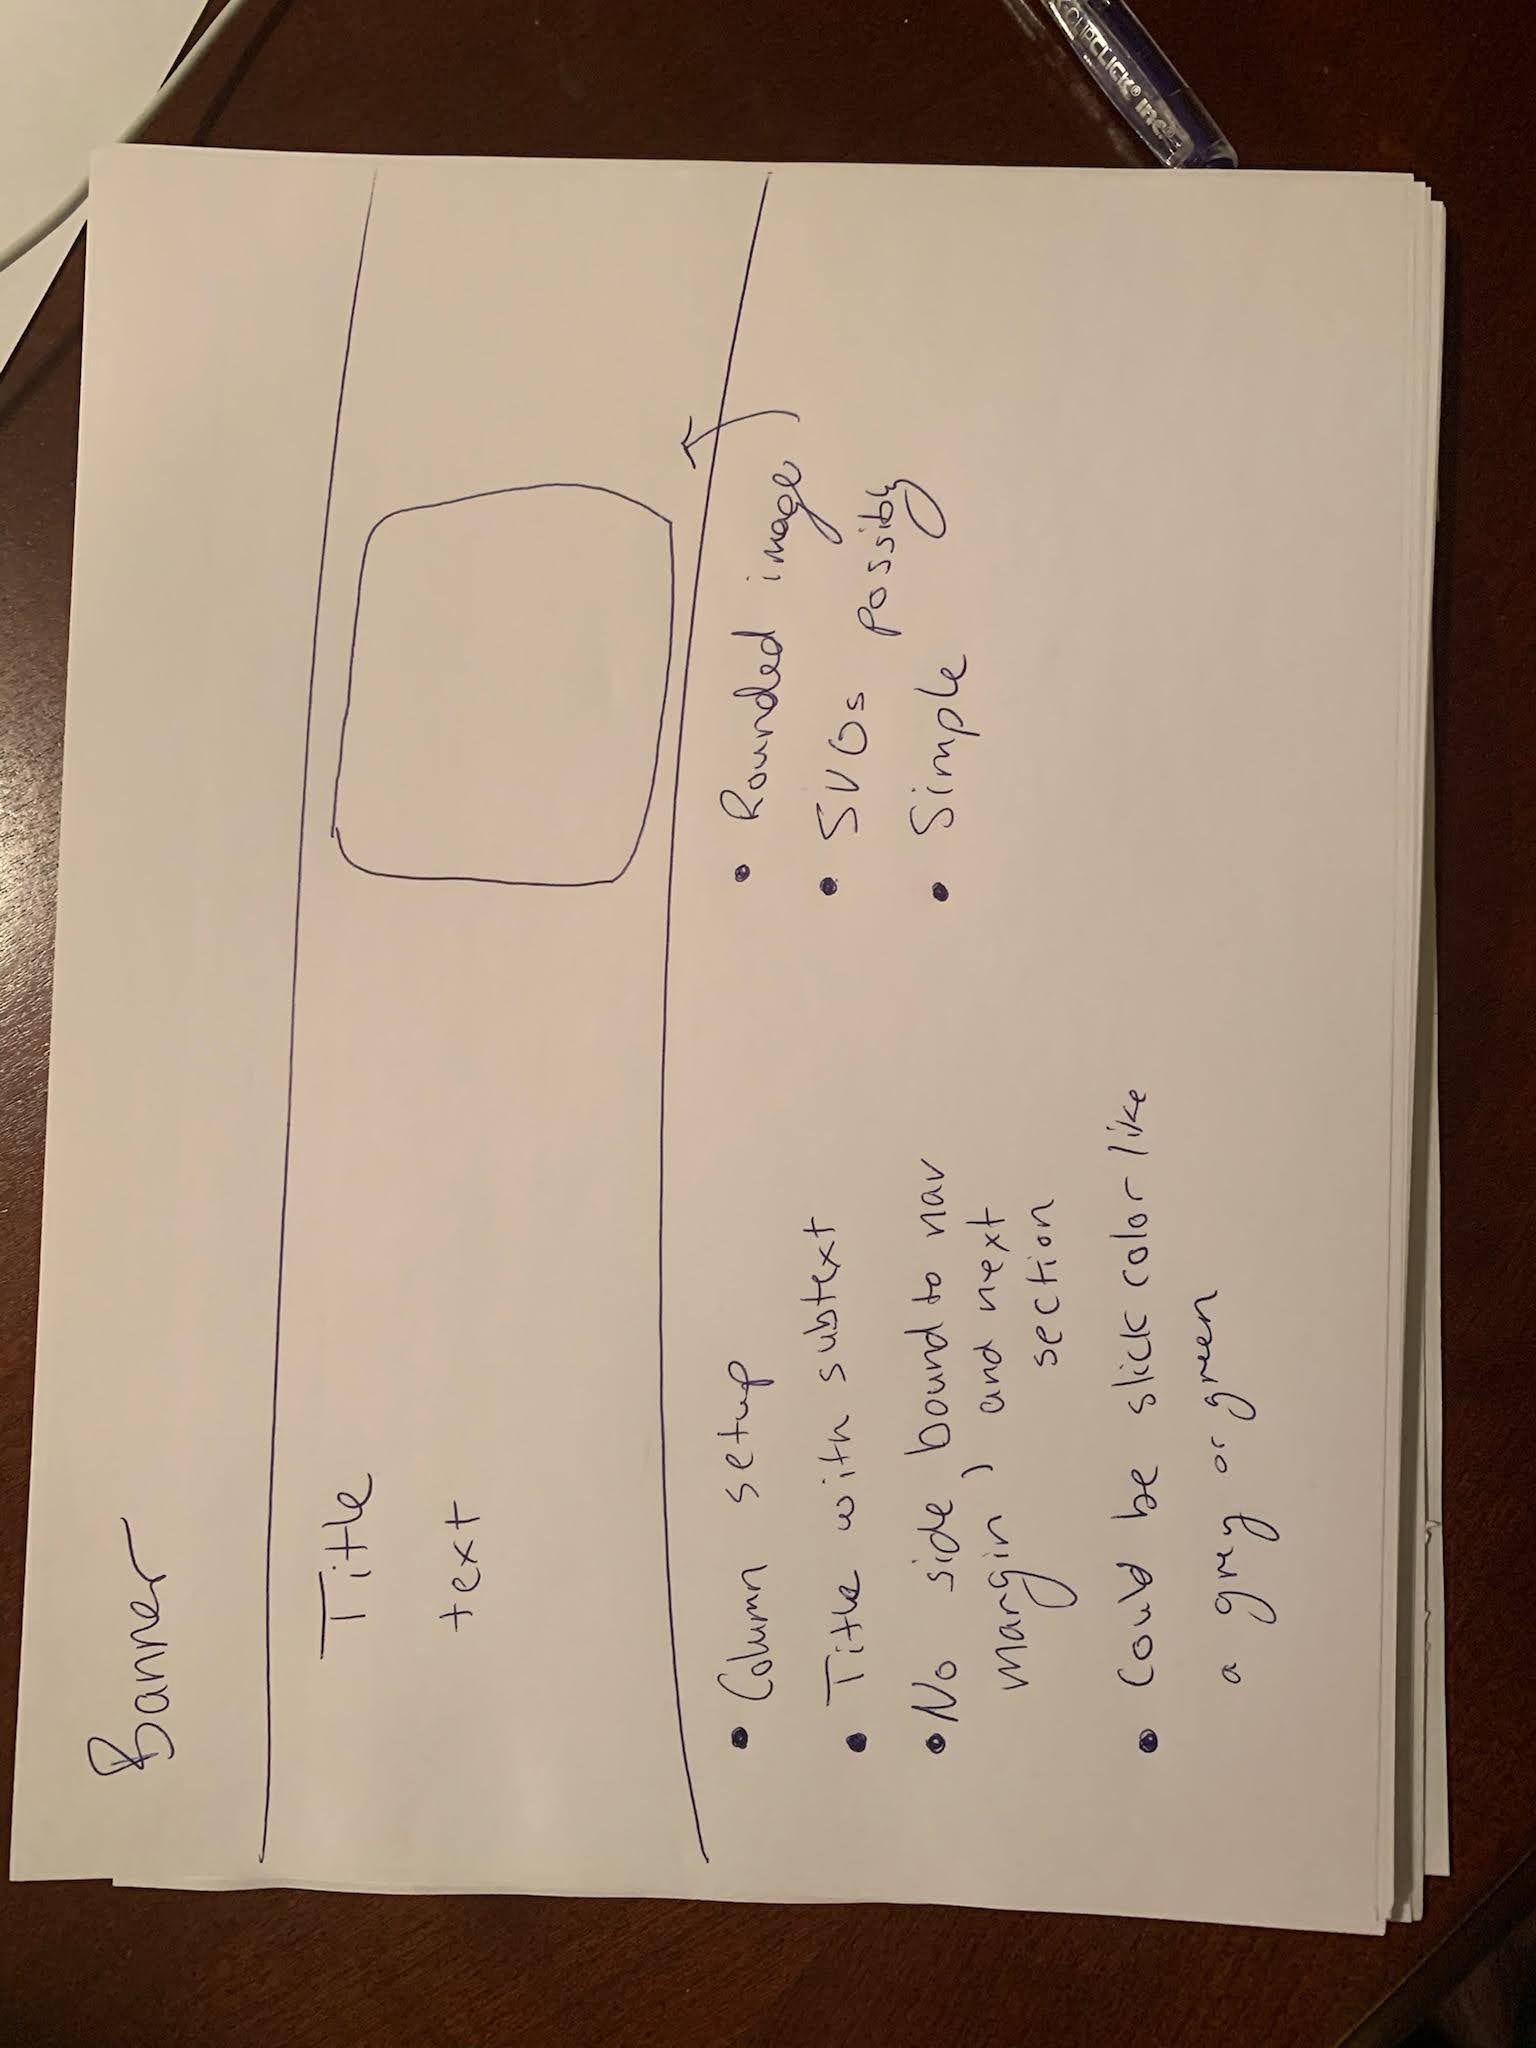 Banner
Title
text
• Column setup
• Title with subtext
• No side bound to nav
margin, and next
section
• Could be slick color like
a grey or green
• Rounded image
• SVGs possibly
• Simple
CLIPCLICK® INC